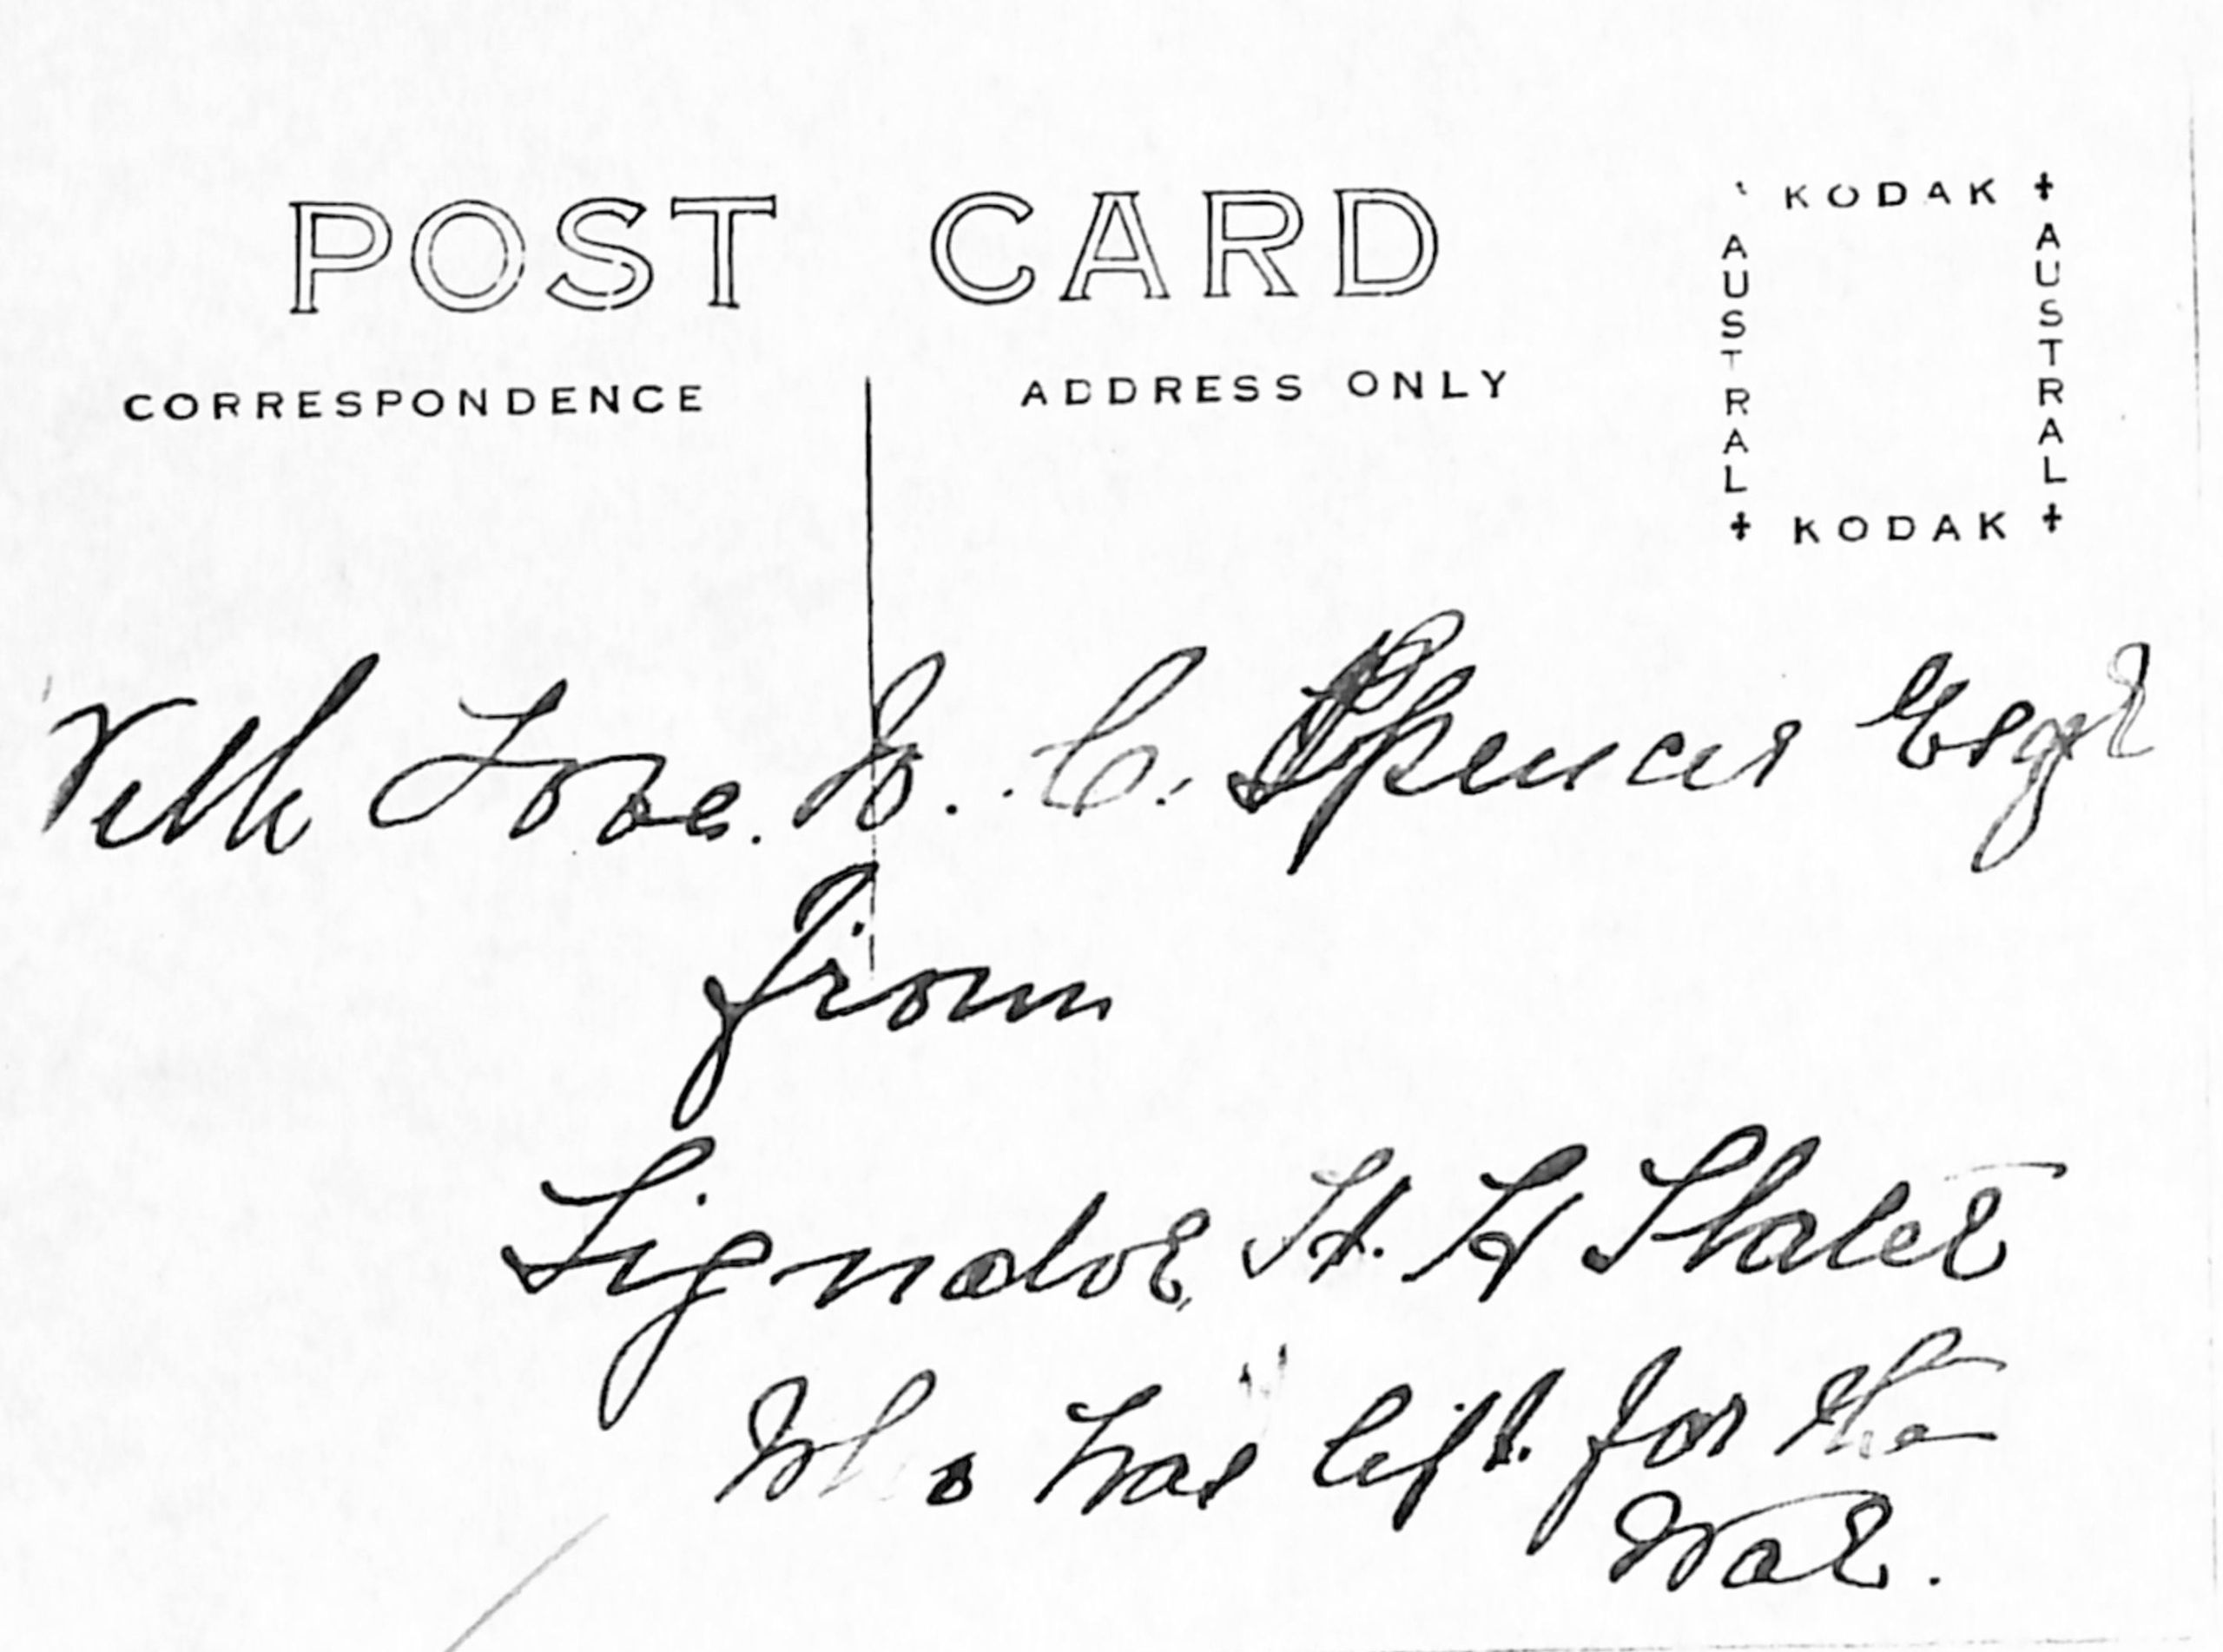 POST CARD
KODAK
AUSTRAL
AUSTRAL
KODAK
CORRESPONDENCE
ADDRESS ONLY
With Love. To. C. Spencer Esqr
from
Signalor H. Slater
Who has left for the
War.